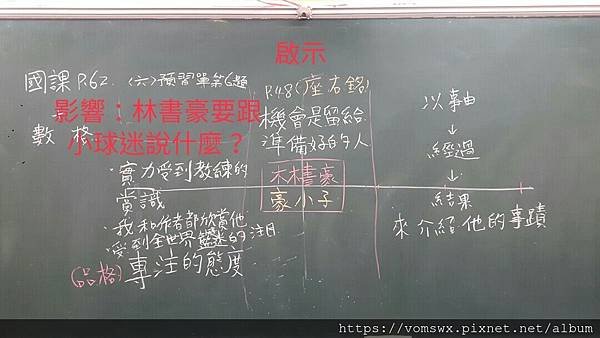 啟示
國課 P.62. (六)預習單第6題
影響：林書豪要跟
小球迷說什麼？
數 格
P.48(座右銘)
機會是留給
準備好的人
林書豪
豪小子
以事由
↓
經過
↓
結果
來介紹他的事蹟
·實力受到教練的
賞識
·我和作者都欣賞他
·受到全世界球迷的注目
(品格)專注的態度
https://vomswx.pixnet.net/album